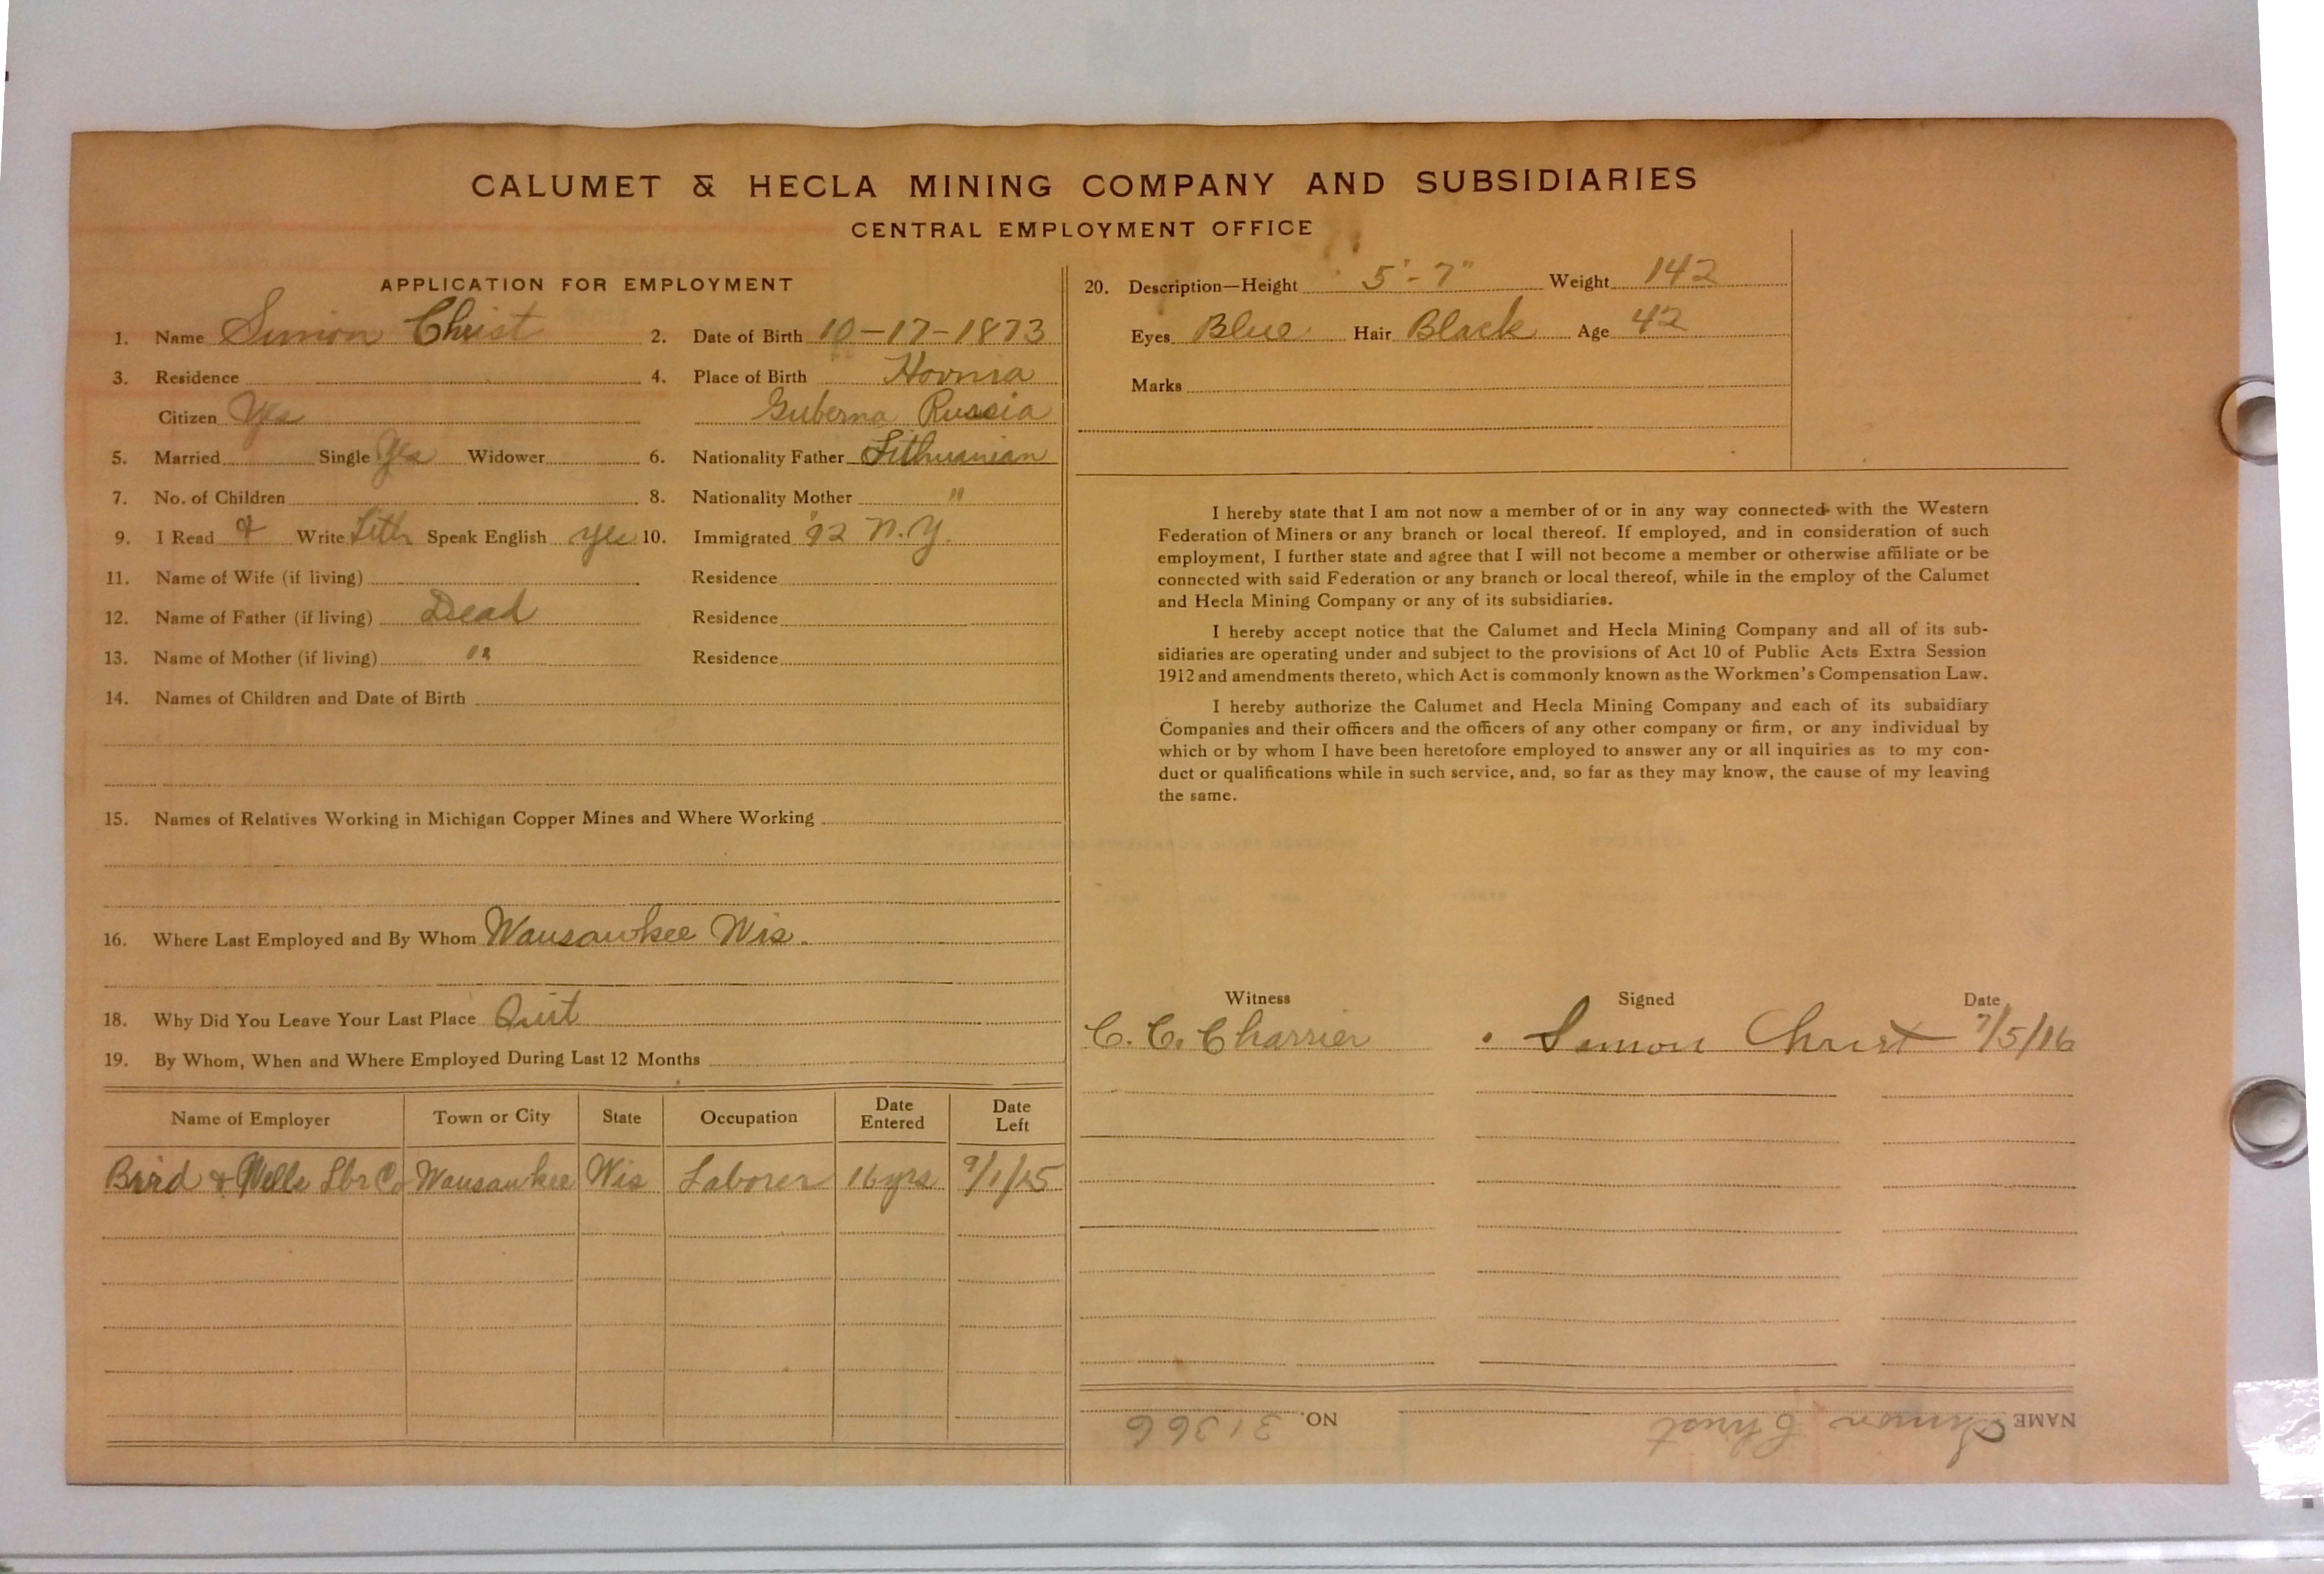 CALUMET & HECLA MINING COMPANY AND SUBSIDIARIES
CENTRAL EMPLOYMENT OFFICE
APPLICATION FOR EMPLOYMENT
1. Name Simon Christ 2. Date of Birth 10-17-1873
3. Residence 4. Place of Birth Hovnia
Citizen Yes Guberna Russia
5. Married Single Yes Widower 6. Nationality Father Lithuanian
7. No. of Children 8. Nationality Mother "
9. I Read & Write Lith Speak English yes 10. Immigrated '92 N.Y.
11. Name of Wife (if living) Residence
12. Name of Father (if living) Dead Residence
13. Name of Mother (if living) " Residence
14. Names of Children and Date of Birth
15. Names of Relatives Working in Michigan Copper Mines and Where Working
16. Where Last Employed and By Whom Wausawkee Wis.
18. Why Did You Leave Your Last Place Quit
19. By Whom, When and Where Employed During Last 12 Months
Name of Employer Town or City State Occupation Date Entered Date Left
Bird & Wells Lbr Co Wausawkee Wis Laborer 16 yrs 9/1/15
20. Description—Height 5'-7" Weight 142
Eyes Blue Hair Black Age 42
Marks
I hereby state that I am not now a member of or in any way connected with the Western
Federation of Miners or any branch or local thereof. If employed, and in consideration of such
employment, I further state and agree that I will not become a member or otherwise affiliate or be
connected with said Federation or any branch or local thereof, while in the employ of the Calumet
and Hecla Mining Company or any of its subsidiaries.
I hereby accept notice that the Calumet and Hecla Mining Company and all of its sub-
sidiaries are operating under and subject to the provisions of Act 10 of Public Acts Extra Session
1912 and amendments thereto, which Act is commonly known as the Workmen's Compensation Law.
I hereby authorize the Calumet and Hecla Mining Company and each of its subsidiary
Companies and their officers and the officers of any other company or firm, or any individual by
which or by whom I have been heretofore employed to answer any or all inquiries as to my con-
duct or qualifications while in such service, and, so far as they may know, the cause of my leaving
the same.
Witness Signed Date
C. C. Charrier Simon Christ 7/5/16
NAME Simon Christ NO. 31366